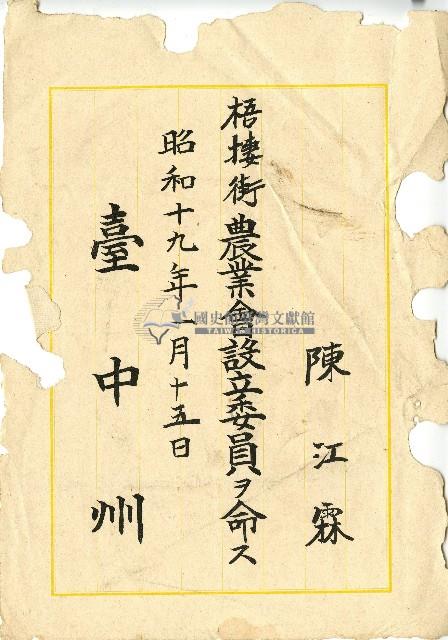 陳江霖
梧棲街農業會設立委員ヲ命ス
昭和十九年二月十五日
臺中州
國史館臺灣文獻館
TAIWAN HISTORICA